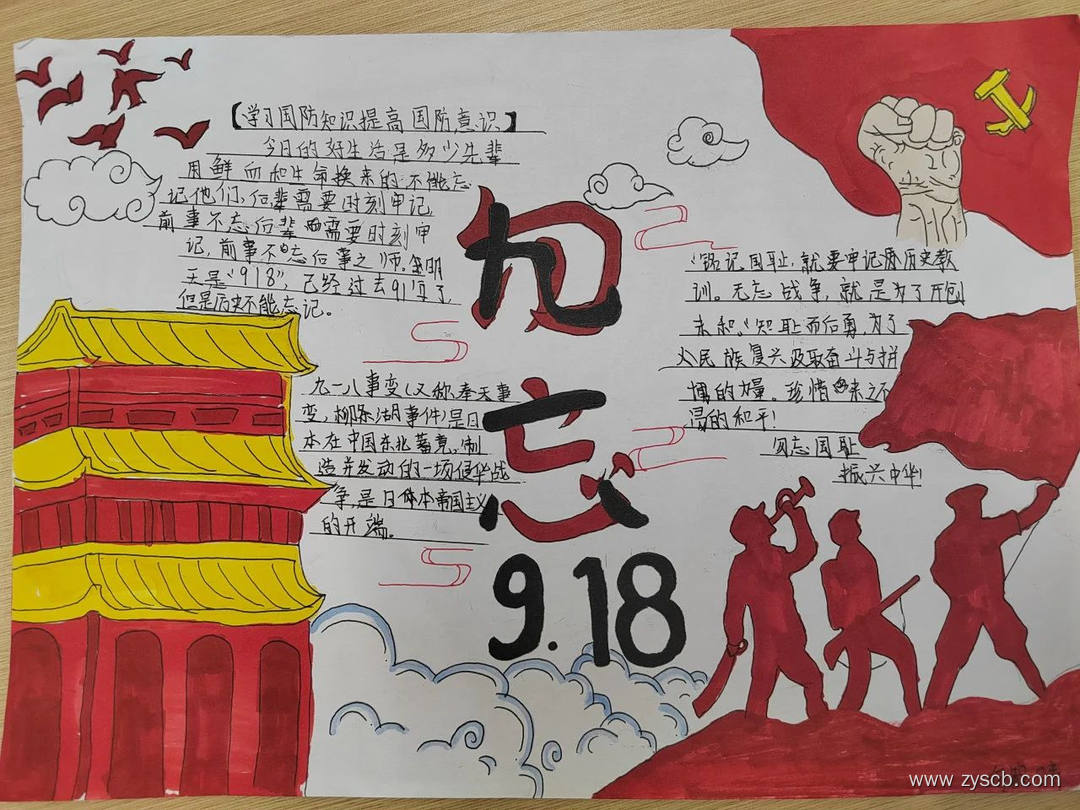 【学习国防知识提高国防意识】
今日的好生活是多少先辈
用鲜而和生命换来的.不能忘
记他们,后辈需要时刻牢记
前事不忘后辈需要时刻牢
记,前事不忘后事之师.
天是"918",已经过去91年了
但是历史不能忘记。
九一八事变(又称奉天事
变,柳条湖事件)是日
本在中国东北蓄竟,制
造并发动的一场侵华战
争,是日本帝国主义
的开端。
勿
忘
9.18
"铭记国耻,就要牢记历史教
训.无忘战争,就是为了开创
未和."知耻而后勇,为了
人民族复兴汲取奋斗与拼
搏的力量.珍惜来之不
易的和平!
勿忘国耻
振兴中华!
www.zyscb.com